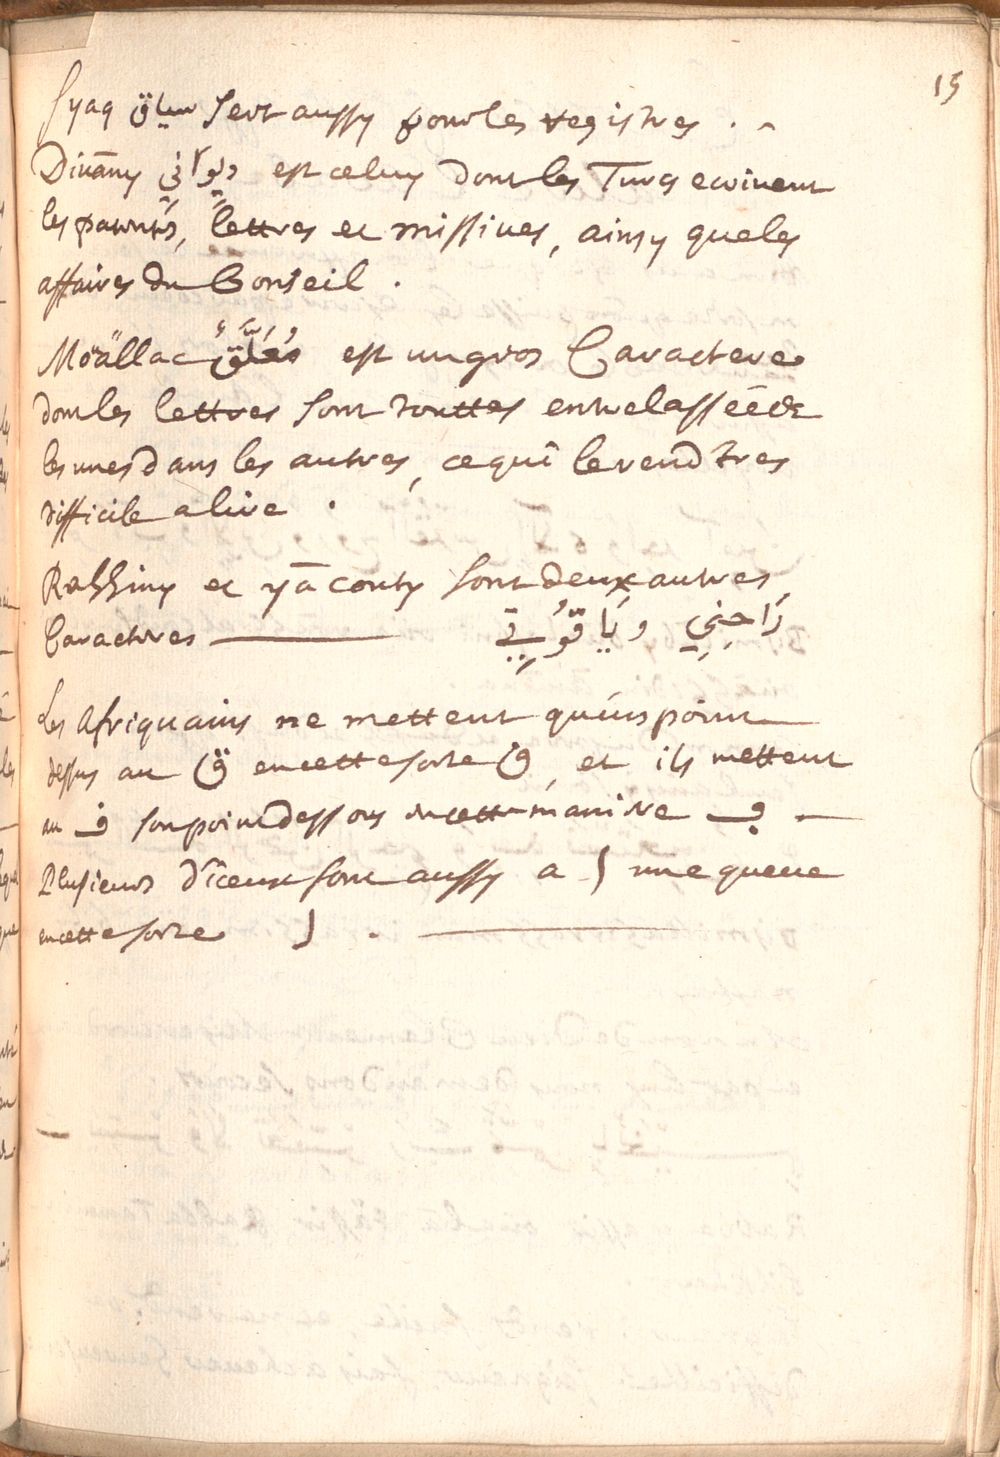 15
Syaq سياق sert aussy pour les registres .
Divāny دِيوَانِي est celuy dont les Turcs ecrivent
les patentes, lettres et missives, ainsy que les
affaires du Conseil .
Moällac مُعَلَّقٌ est un gros Caractere
dont les lettres sont touttes entrelasséés
les unes dans les autres, ce qui le rend tres
difficile a lire .
Rahhiny et yā couty sont deux autres
Caracteres رَاحِنِي و يَاقُوتِي
Les Afriquains ne mettent qu'un point
dessus au ق en cette sorte ڧ, et ils mettent
au ف son point dessous en cette maniere ڢ
Plusieurs d'iceux font aussy a ا une queue
en cette sorte .